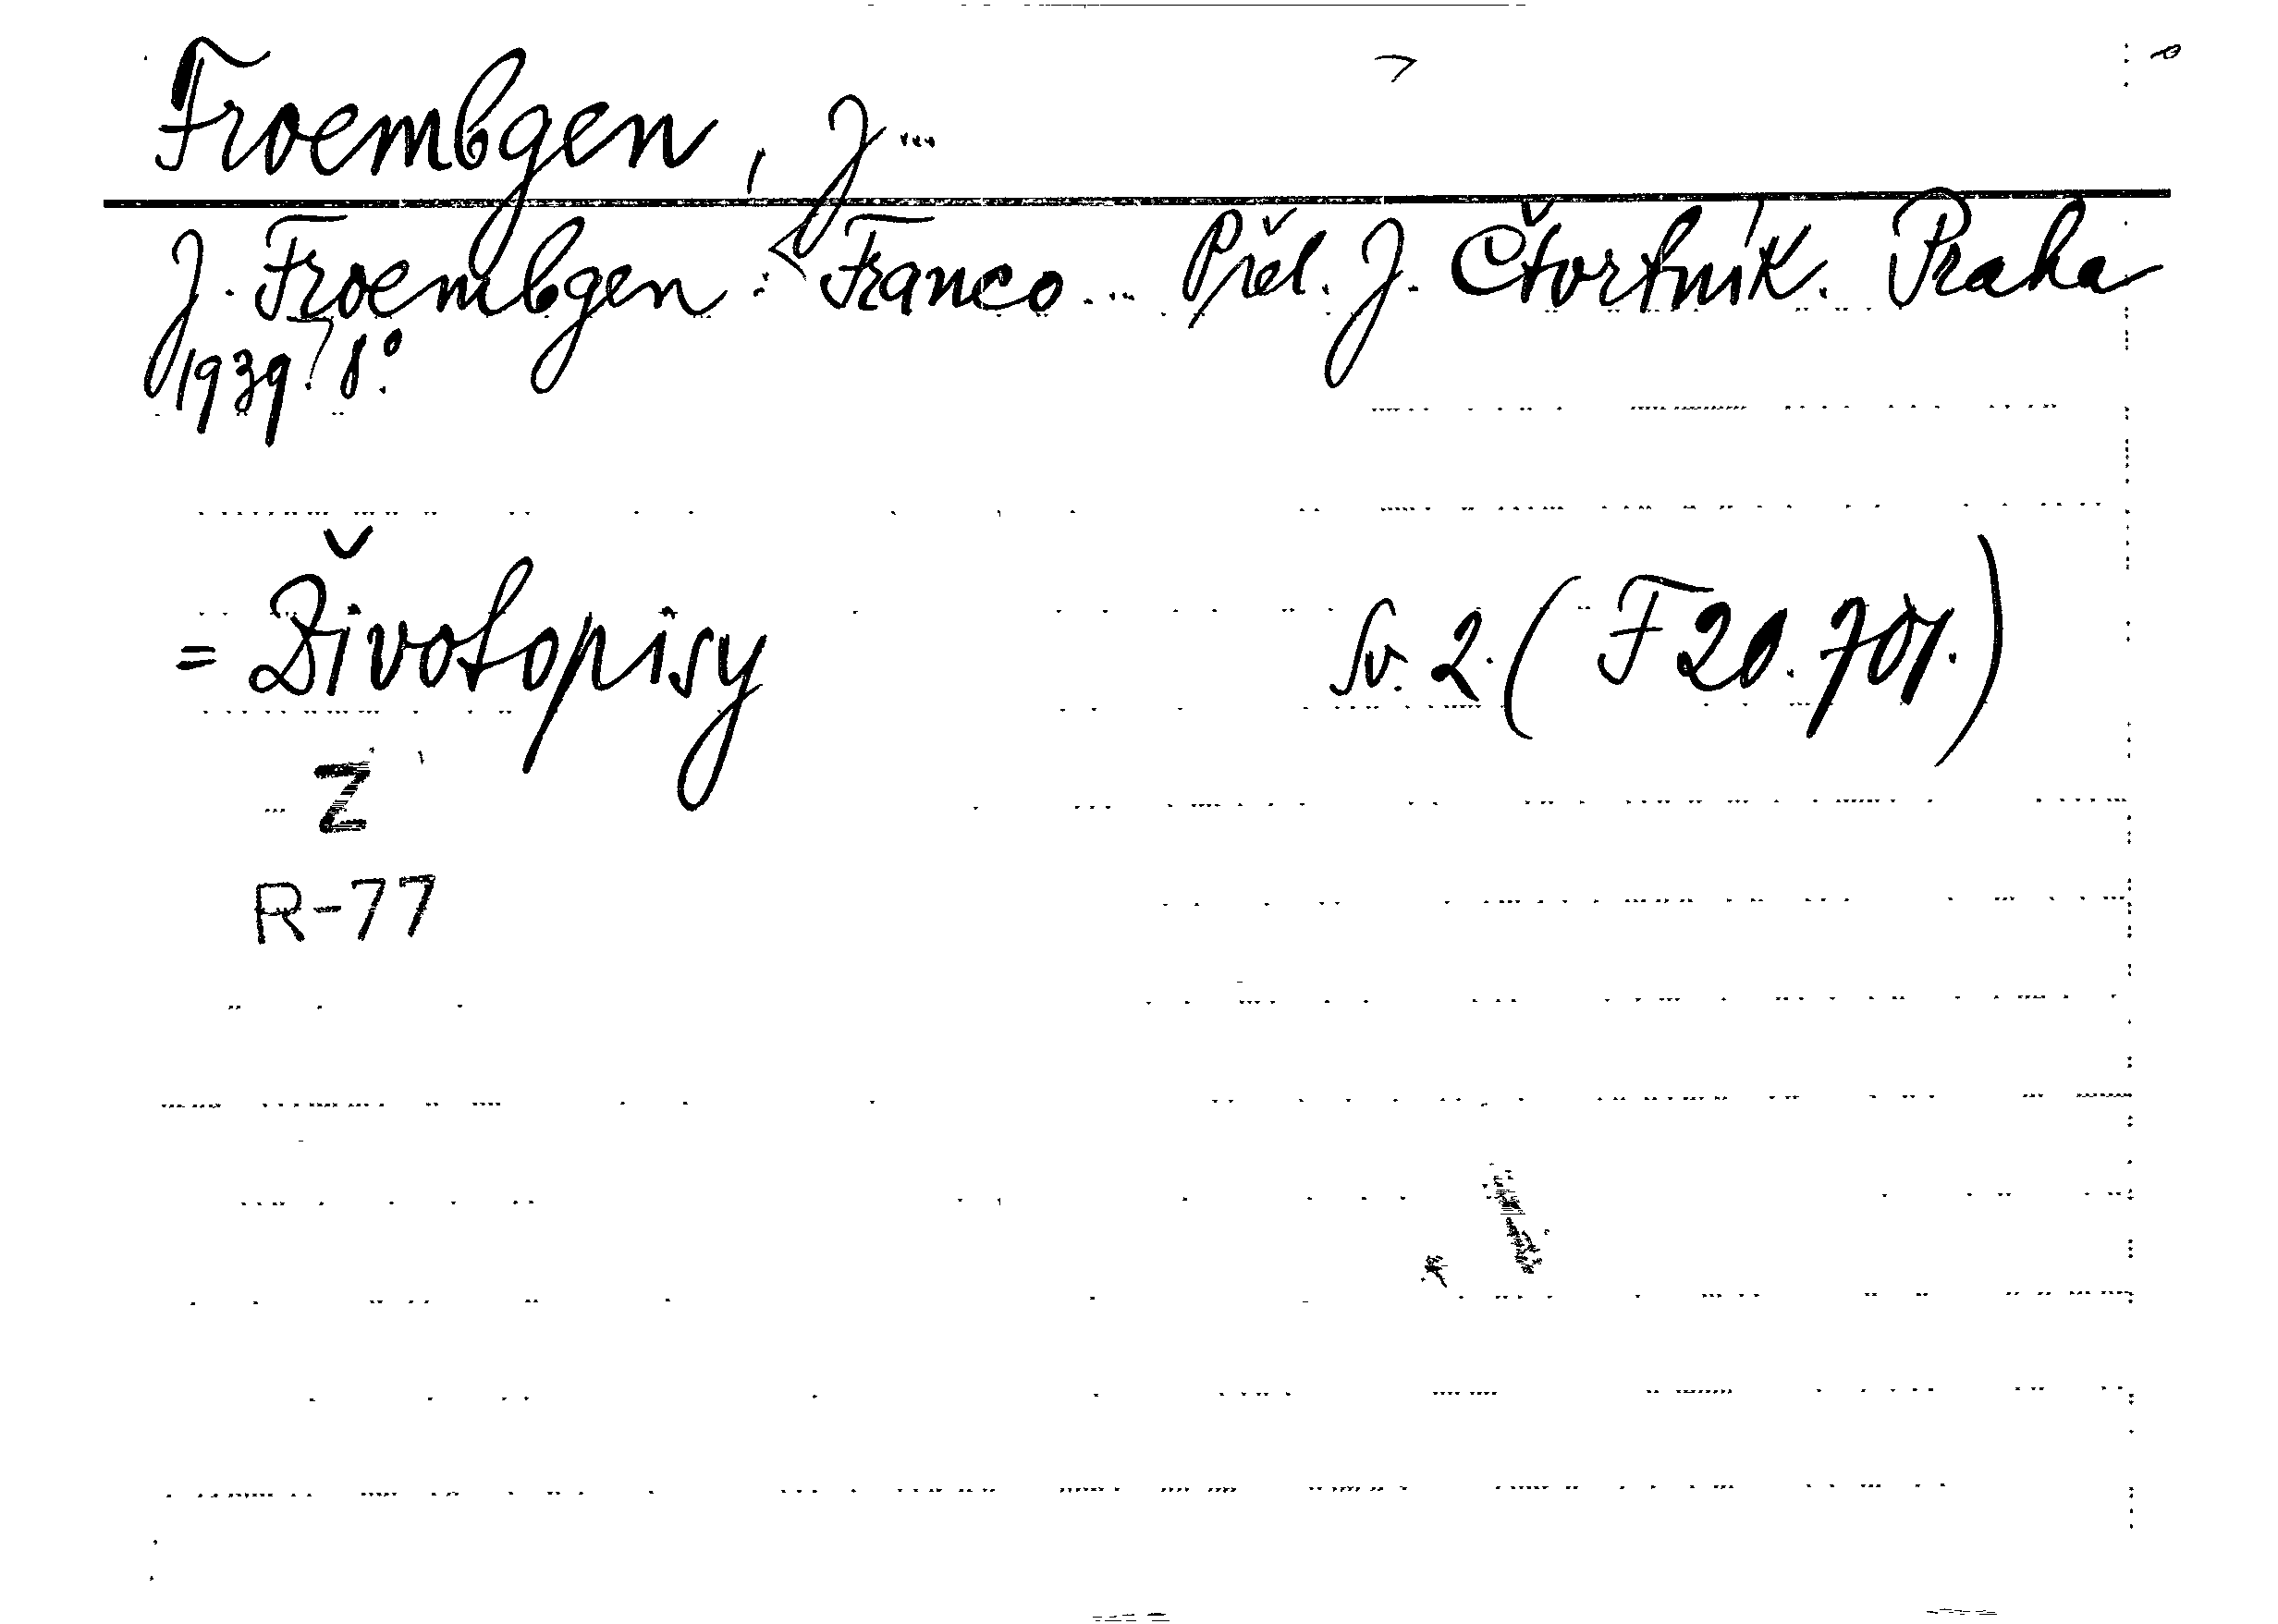 Froembgen, J...
J. Froembgen: Franco... Přel. J. Čtvrtník. Praha
1939. 8°.
= Životopisy Sv. 2. (F 20.701.)
Z
R-77